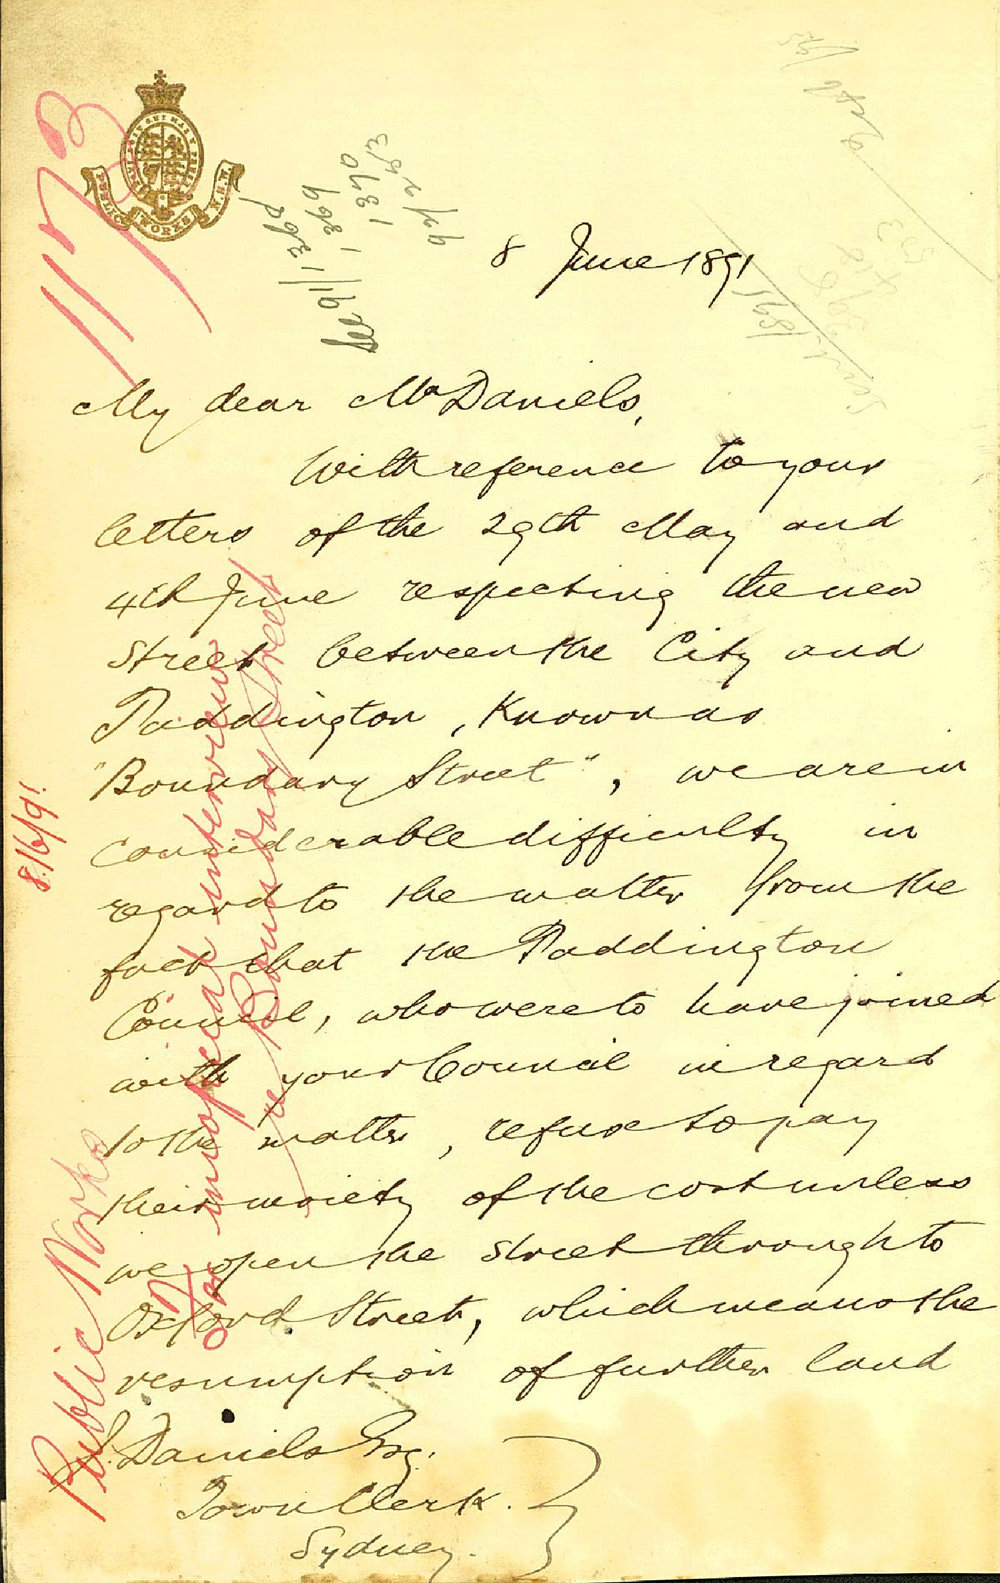 PUBLIC WORKS N.S.W.
8 June 1891
My dear Mr Daniels,
With reference to your
letters of the 29th May and
4th June respecting the new
Street between the City and
Paddington, Known as
"Boundary Street", we are in
considerable difficulty in
regard to the matter from the
fact that the Paddington
Council, who were to have joined
with your Council in regard
to the matter, refuse to pay
their moiety of the cost unless
we open the street through to
Oxford Street, which means the
resumption of further land
J. Daniels Esq.
Town Clerk.
Sydney.
Public Works
8/6/91
interview
re Boundary Street
1891